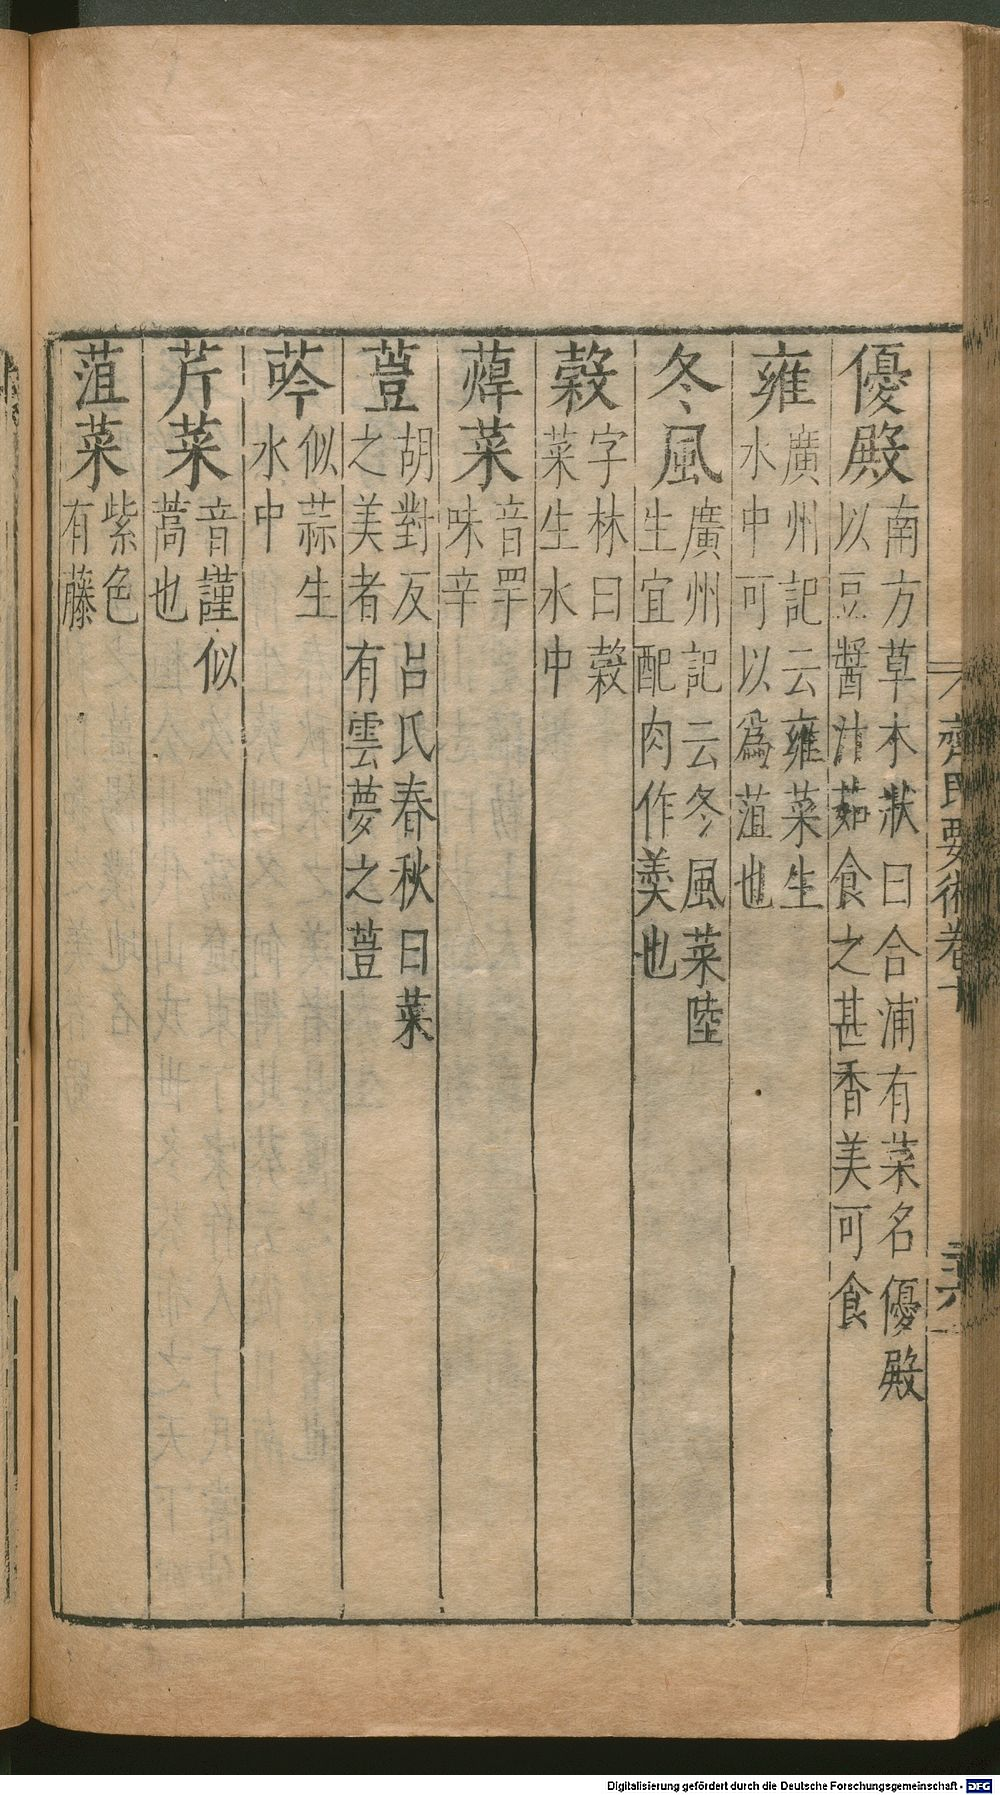 優殿 南方草木狀曰合浦有菜名優殿
以豆醬汁茹食之甚香美可食
雍 廣州記云雍菜生
水中可以爲菹也
冬風 廣州記云冬風菜陸
生宜配肉作羹也
穀 字林曰穀
菜生水中
蔊菜 音罕
味辛
荳 胡對反呂氏春秋曰菜
之美者有雲夢之荳
荶 似蒜生
水中
芹菜 音謹似
蒿也
菹菜 紫色
有藤
齊民要術卷十
Digitalisierung gefördert durch die Deutsche Forschungsgemeinschaft - DFG